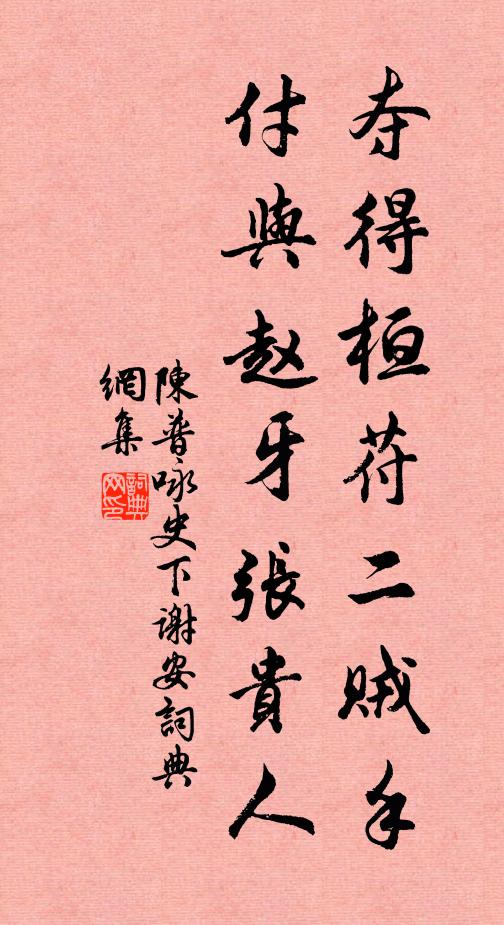 夺得桓苻二贼手
付與赵牙張貴人
陳普咏史下谢安詞典
網集
詞典
网印